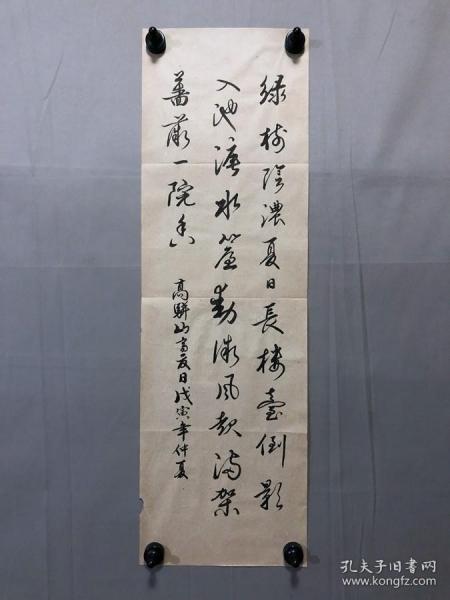 綠树陰濃夏日長楼臺倒影
入池塘水簾動微風起滿架
薔薇一院香 高駢山亭夏日戊寅年仲夏
孔夫子旧书网
www.kongfz.com